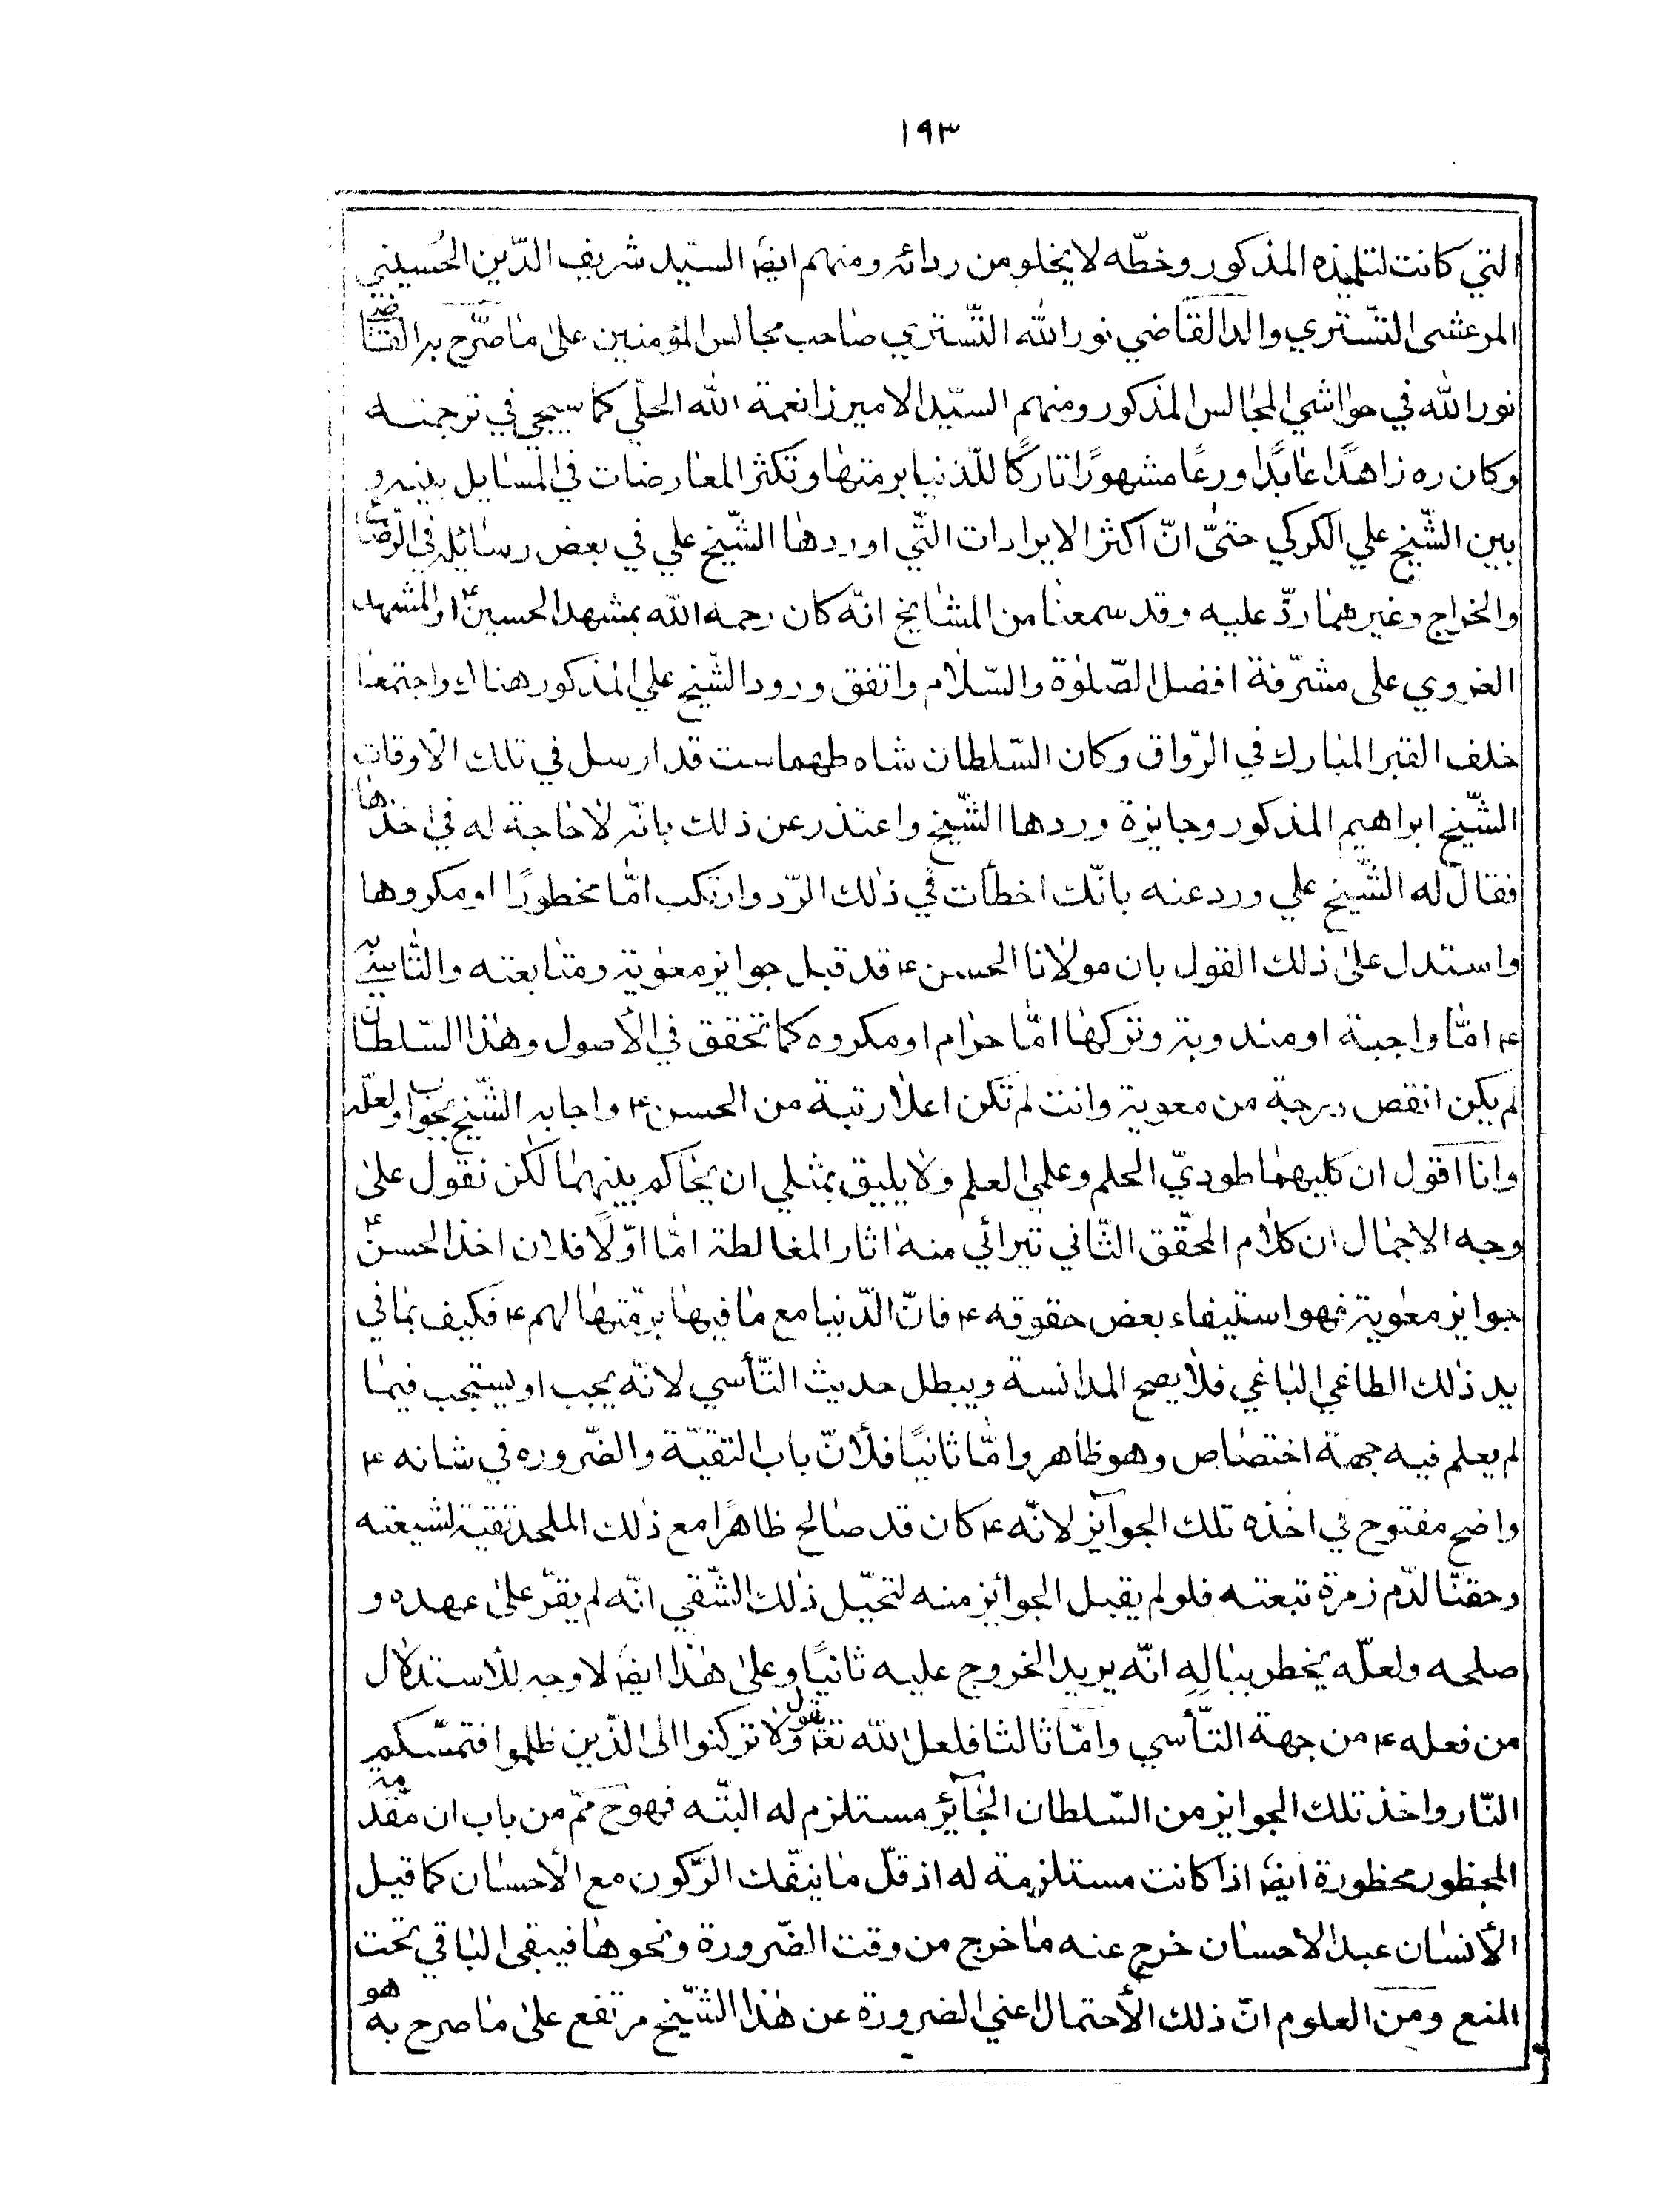 ١٩٣
التي كانت لتلميذه المذكور وخطّه لا يخلو من ردائه ومنهم ايضا السيّد شريف الدّين الحُسيني
المرعشى التّستري والد القاضي نور الله التّستري صاحب مجالس المؤمنين على ما صرّح به القاضي
نور الله في حواشي المجالس المذكور ومنهم السيّد الامير زا نعمة الله الحلّي كما سيجي في ترجمته
وكان ره زاهدًا عابدًا ورعًا مشهورًا تاركًا للدّنيا برمتها وتكثر المعارضات في المسايل بينه و
بين الشّيخ علي الكركي حتىّ انّ اكثر الايرادات التّي اوردها الشّيخ علي في بعض رسائله في الرّضاع
والخراج وغيرهما ردّ عليه وقد سمعنا من المشايخ انّه كان رحمه الله بمشهد الحسين ع او المشهد
الغروي على مشرّفة افضل الصّلوة والسّلام واتفق ورود الشّيخ علي المذكور هناك واجتمعا
خلف القبر المبارك في الرّواق وكان السّلطان شاه طهماست قد ارسل في تلك الاوقات
الشّيخ ابراهيم المذكور وجايزة وردها الشّيخ واعتذر عن ذلك بانّه لا حاجة له في اخذها
فقال له الشّيخ علي ورد عنه بانّك اخطأت في ذلك الرّد وارتكب امّا مخطورًا او مكروها
واستدل على ذلك القول بان مولانا الحسن ع قد قبل جوايز معوية ومتابعته والتاسي به
ع امّا واجبة او مندوبة وتركها امّا حرام او مكروه كما تحقق في الأصول وهذا السّلطان
لم يكن انقص درجة من معوية وانت لم تكن اعلا رتبة من الحسن ع واجابه الشّيخ بجواب ولعلّه
وانا اقول ان كليهما طوديّ الحلم وعلمي العلم ولا يليق بمثلي ان يحاكم بينهما لكن نقول على
وجه الاجمال ان كلام المحقّق الثّاني تترائي منه اثار المغالطة امّا اوّلًا فلان اخذ الحسن ع
جوايز معوية فهو استيفاء بعض حقوقه ع فانّ الدّنيا مع ما فيها برمّتها لهم ع فكيف بما في
يد ذلك الطاغي الباغي فلا يصح المدانسة ويبطل حديث التّأسي لانّه يجب او يستحب فيما
لم يعلم فيه جهة اختصاص وهو ظاهر وامّا ثانيًا فلأنّ باب التقيّة والضّروره في شانه ع
واضح مفتوح في اخذه تلك الجوآيز لانّه ع كان قد صالح ظاهرًا مع ذلك الملحد تقية لشيعته
وحقنًا لدّم زمرة تبعته فلو لم يقبل الجوائز منه لتخيّل ذلك الشّقي انّه لم يقرّ على عهده و
صلحه ولعلّه يخطر بباله انّه يريد الخروج عليه ثانيًا وعلى هذا ايضا لا وجه للاستدلال
من فعله ع من جهة التّأسي وامّا ثالثا فلعل الله تعالى يقول ولا تركنوا الى الّذين ظلموا فتمسّكم
النّار واخذ تلك الجوايز من السّلطان الجآئر مستلزم له البتّه فهوح مّم من باب ان مقدّمة
المحظور محظورة ايضا اذا كانت مستلزمة له اذ قلّ ما ينفّك الرّكون مع الأحسان كما قيل
الأنسان عبد الاحسان خرج عنه ما خرج من وقت الضّرورة ونحوها فيبقى الباقي تحت
المنع ومن العلوم انّ ذلك الأحتمال اعني الضرورة عن هذا الشّيخ مرتفع على ما صرح به هو